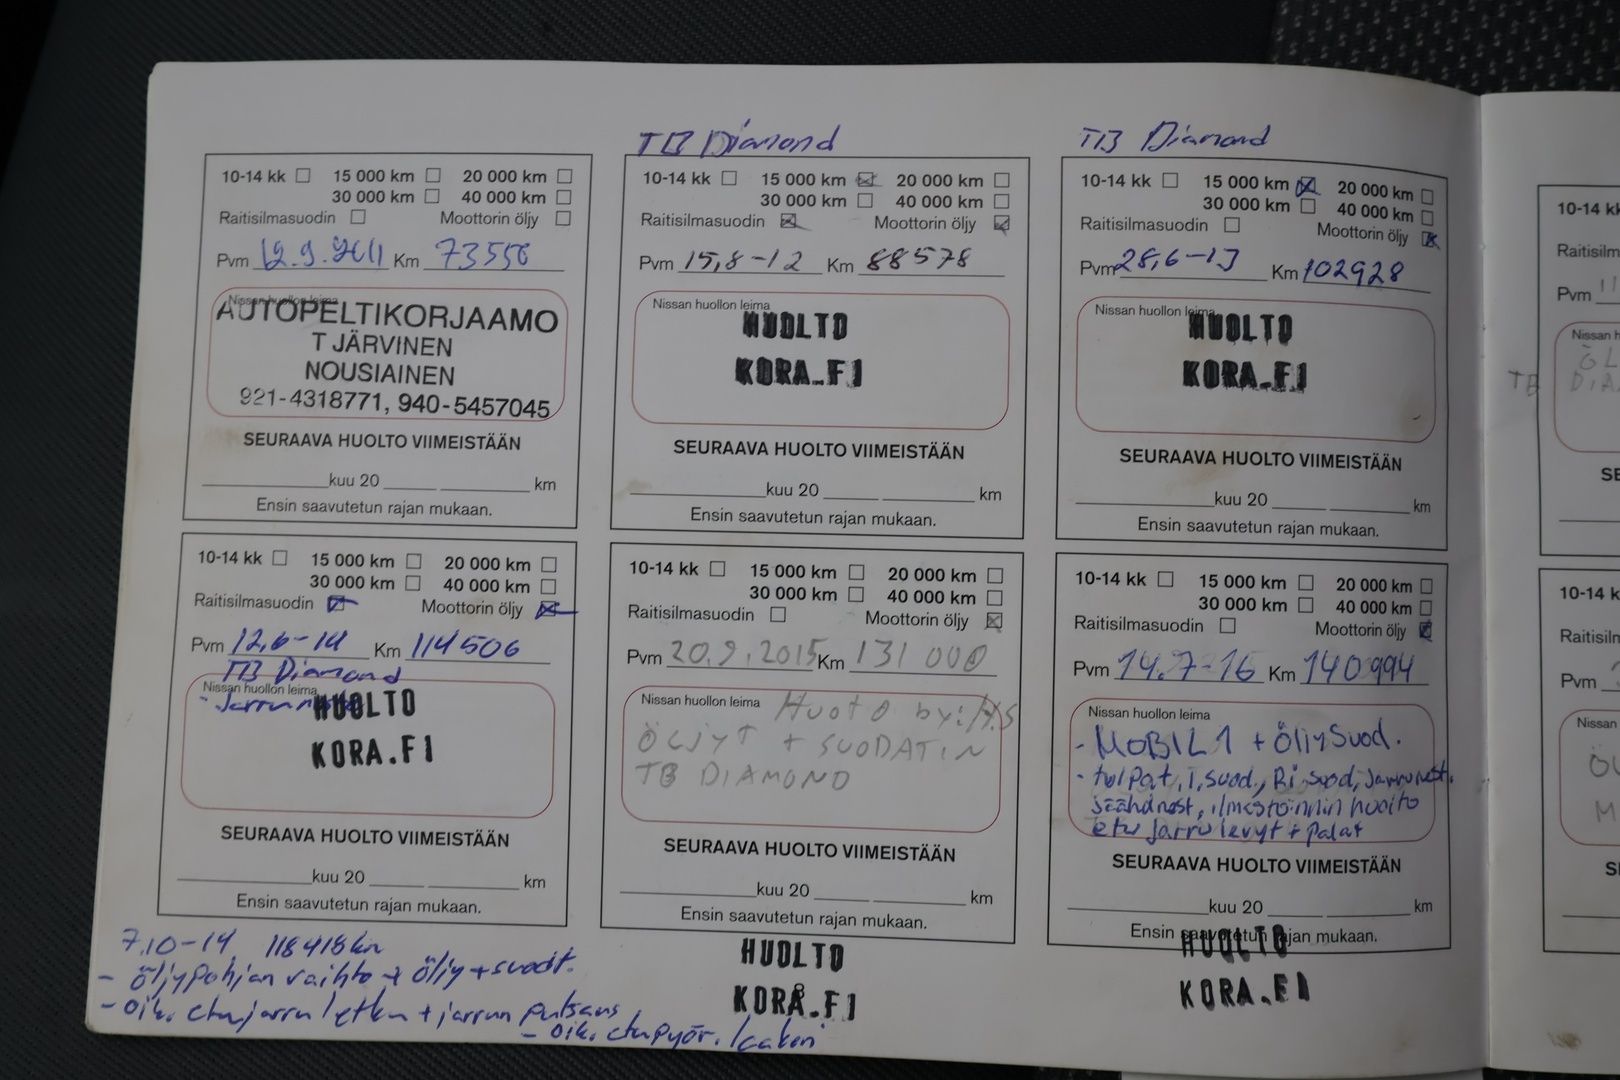 10-14 kk 15 000 km 20 000 km
30 000 km 40 000 km
Raitisilmasuodin Moottorin öljy
Pvm 12.9.2011 Km 73556
Nissan huollon leima
AUTOPELTIKORJAAMO
T JÄRVINEN
NOUSIAINEN
921-4318771, 940-5457045
SEURAAVA HUOLTO VIIMEISTÄÄN
kuu 20 km
Ensin saavutetun rajan mukaan.
TB Diamond
10-14 kk 15 000 km 20 000 km
30 000 km 40 000 km
Raitisilmasuodin Moottorin öljy
Pvm 15,8-12 Km 88578
Nissan huollon leima
HUOLTO
KORA.FI
SEURAAVA HUOLTO VIIMEISTÄÄN
kuu 20 km
Ensin saavutetun rajan mukaan.
TB Diamond
10-14 kk 15 000 km 20 000 km
30 000 km 40 000 km
Raitisilmasuodin Moottorin öljy
Pvm 28,6-13 Km 102928
Nissan huollon leima
HUOLTO
KORA.FI
SEURAAVA HUOLTO VIIMEISTÄÄN
kuu 20 km
Ensin saavutetun rajan mukaan.
10-14 kk 15 000 km 20 000 km
30 000 km 40 000 km
Raitisilmasuodin Moottorin öljy
Pvm 12,6-14 Km 114506
TB Diamond
Nissan huollon leima
HUOLTO
KORA.FI
SEURAAVA HUOLTO VIIMEISTÄÄN
kuu 20 km
Ensin saavutetun rajan mukaan.
7.10-14, 118418km
- öljypohjan vaihto + öljy + suodt.
- oik. etujarruletku + jarrun putsaus
- oik. etupyör. laakeri
10-14 kk 15 000 km 20 000 km
30 000 km 40 000 km
Raitisilmasuodin Moottorin öljy
Pvm 20.9.2015 Km 131 000
Nissan huollon leima
ÖLJYT + SUODATIN
TB DIAMOND
SEURAAVA HUOLTO VIIMEISTÄÄN
kuu 20 km
Ensin saavutetun rajan mukaan.
HUOLTO
8
KORA.FI
10-14 kk 15 000 km 20 000 km
30 000 km 40 000 km
Raitisilmasuodin Moottorin öljy
Pvm 14.7-16 Km 140994
Nissan huollon leima
- MOBIL 1 + öljySuod.
- tulpat, i,suod., Ri-suod, jarrunest.
jäähdnest, ilmastoinnin huolto
etu jarrulevyt + palat
SEURAAVA HUOLTO VIIMEISTÄÄN
kuu 20 km
Ensin saavutetun rajan mukaan.
HUOLTO
KORA.FI
10-14 kk
Pvm
TB
10-14 k
Pvm
Nissan